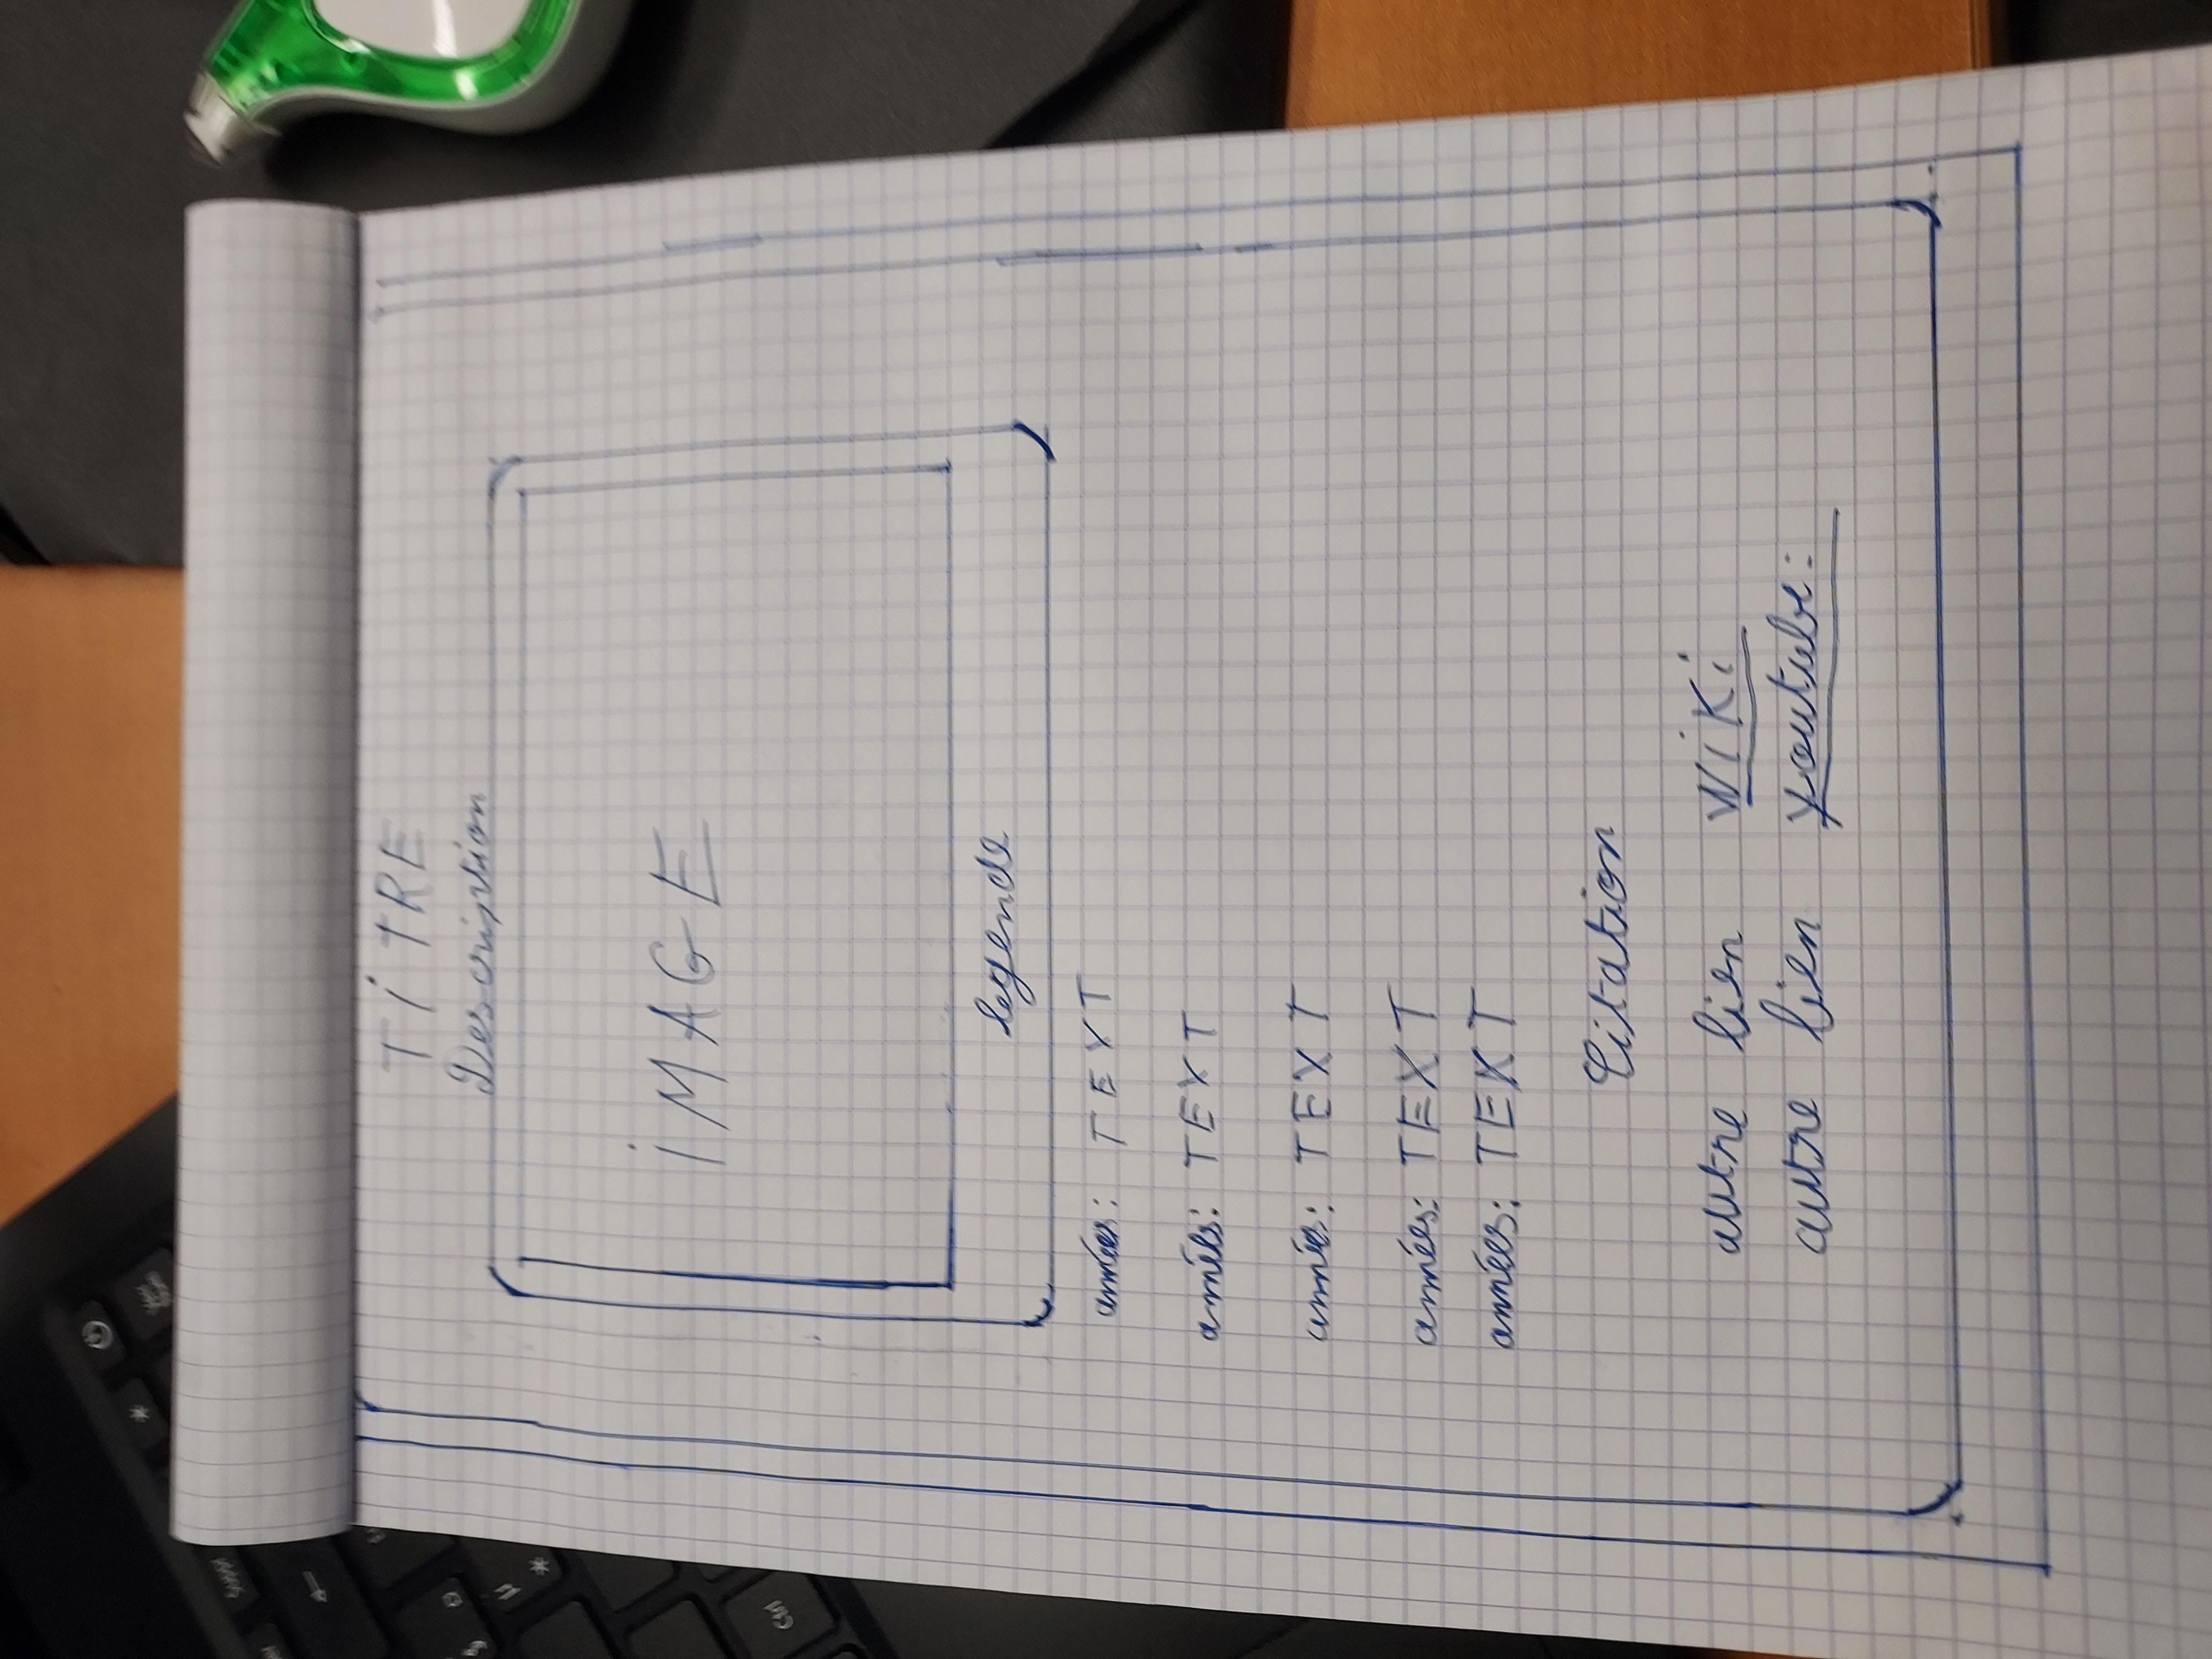 TiTRE
Description
iMAGE
legende
années: TEXT
années: TEXT
années: TEXT
années: TEXT
années: TEXT
Citation
autre lien WiKi
autre lien youtube:
Suppl
Ctrl